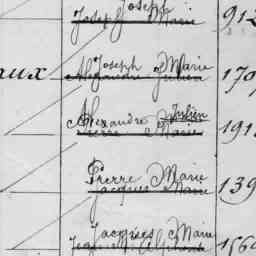 Joseph
Joseph Marie 912
Joseph Marie
aux Alexandre Julien 179
Alexandre Julien
Pierre Marie 191
Pierre Marie
Jacques Marie 139
Jacques Marie
Jeanne 156